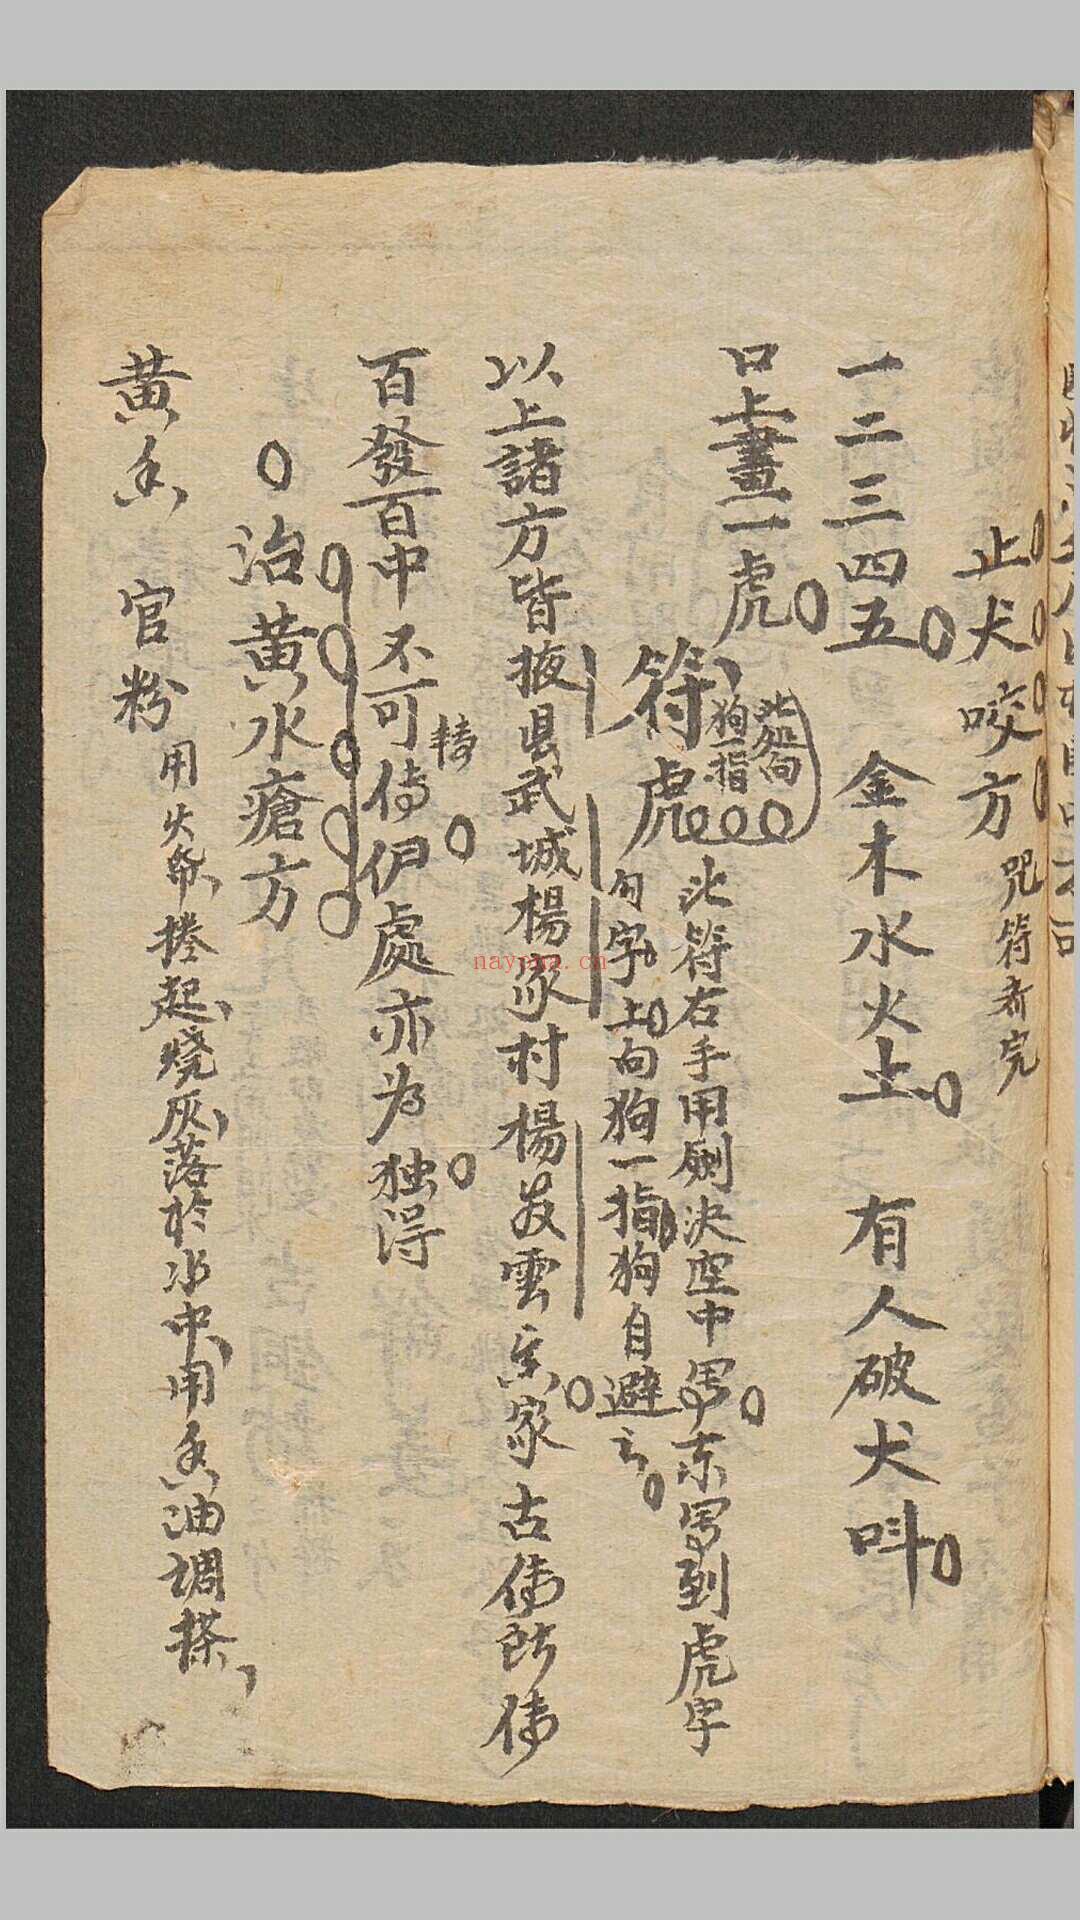 止犬咬方 咒符齐完
一二三四五 金木水火土 有人破犬叫
口上畫一虎
符虎 此処向狗一指
此符右手用劍決空中写亦写到虎字
勾字上向狗一指狗自避之
以上諸方皆掖县武城楊家村楊發雲玄家古传所传
百發百中不可轉传伊處亦为独得
治黄水瘡方
黄香 官粉 用火帋捲起燒灰落於水中用香油調搽
nayona.cn